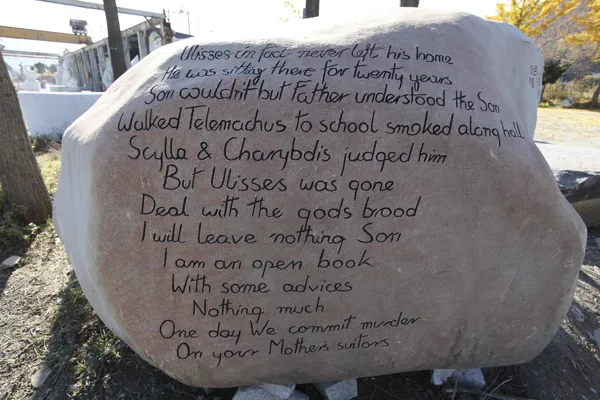 Ulisses in fact never left his home
He was sitting there for twenty years
Son couldn't but Father understood the Son
Walked Telemachus to school smoked along hall
Scylla & Charybdis judged him
But Ulisses was gone
Deal with the gods brood
I will leave nothing Son
I am an open book
With some advices
Nothing much
One day We commit murder
On your Mother's suitors